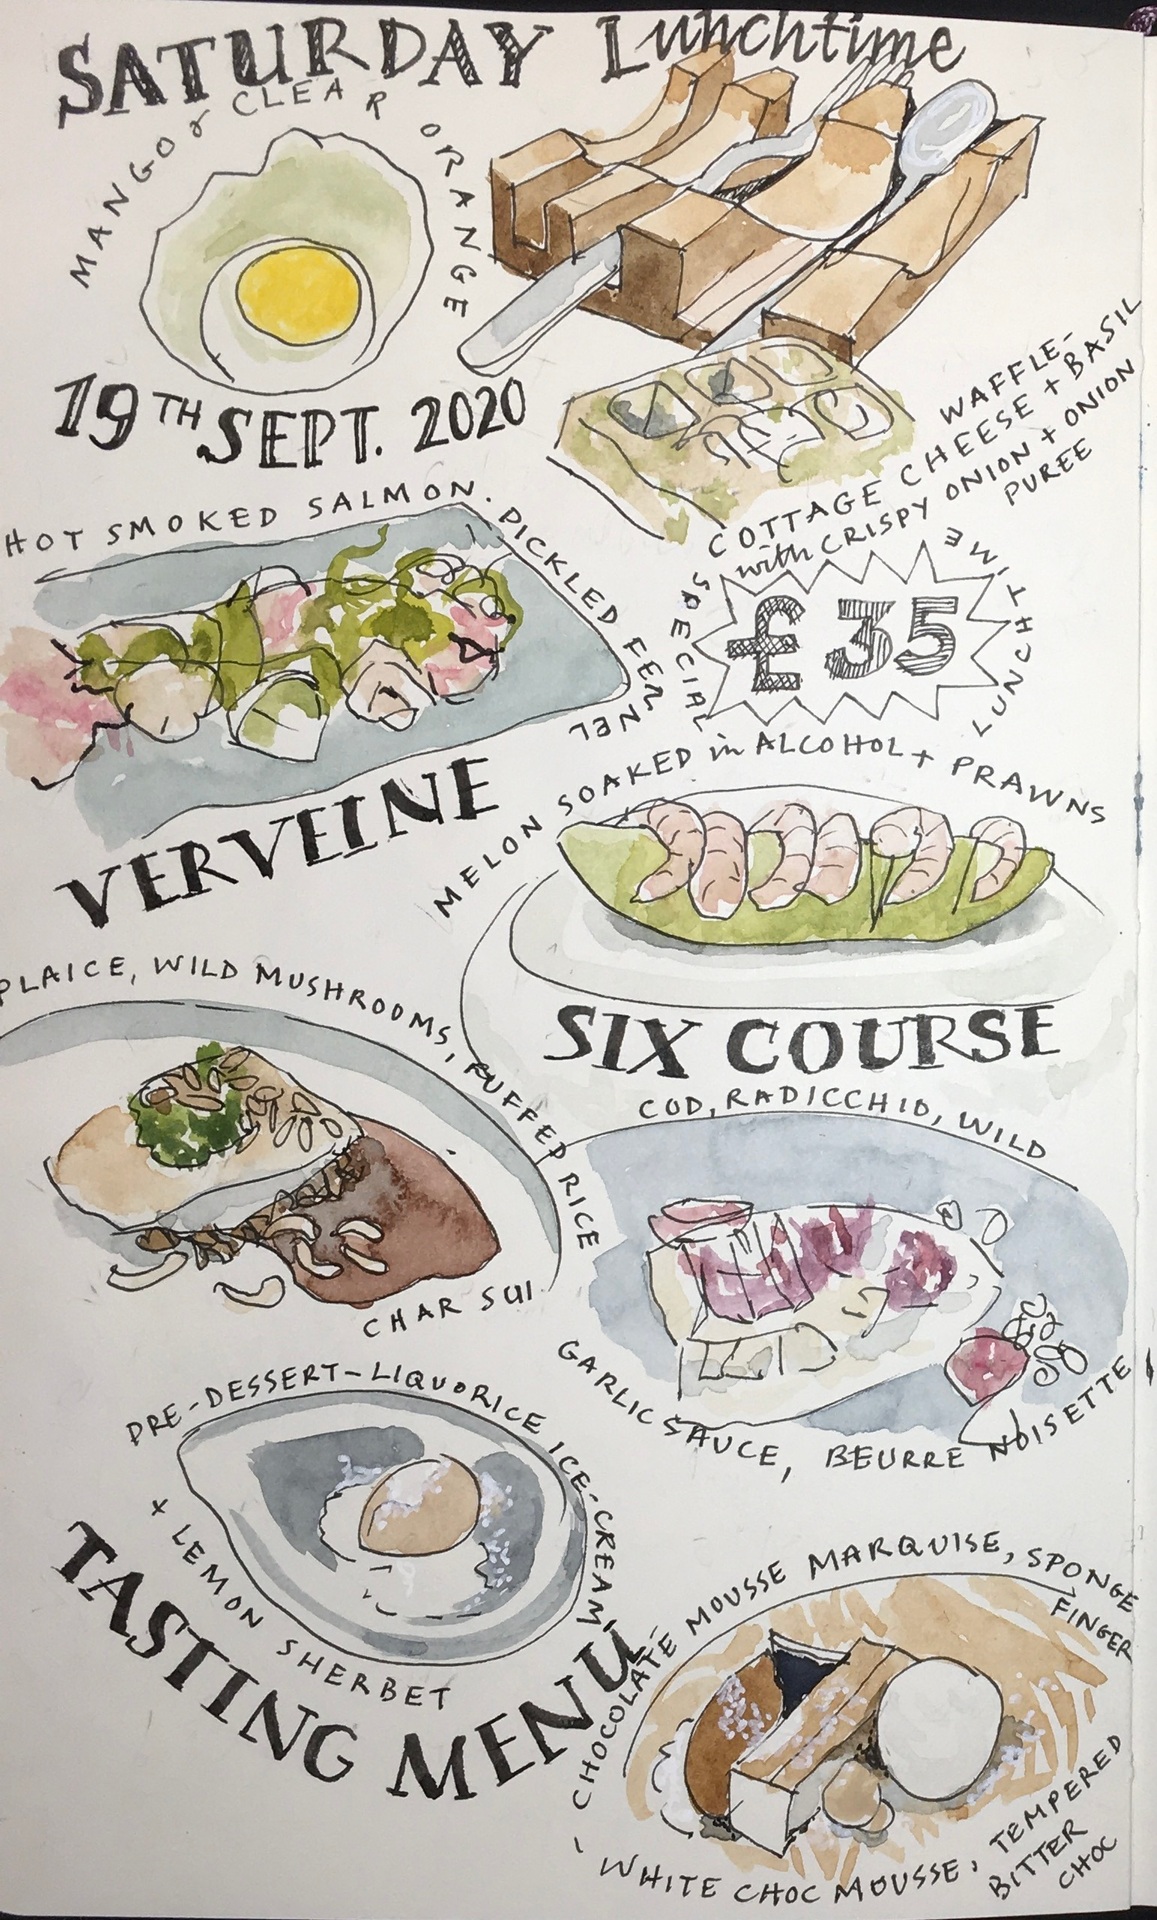 SATURDAY Lunchtime
MANGO & CLEAR ORANGE
19TH SEPT. 2020
WAFFLE-
COTTAGE CHEESE + BASIL
with CRISPY ONION + ONION
PUREE
HOT SMOKED SALMON. PICKLED FENNEL
SPECIAL
£35
LUNCHTIME
VERVEINE
MELON SOAKED in ALCOHOL + PRAWNS
SIX COURSE
PLAICE, WILD MUSHROOMS, PUFFED RICE
CHAR SUI
COD, RADICCHIO, WILD
GARLIC SAUCE, BEURRE NOISETTE
PRE-DESSERT-LIQUORICE ICE-CREAM
+ LEMON SHERBET
TASTING MENU
- CHOCOLATE MOUSSE MARQUISE, SPONGE
FINGER
- WHITE CHOC MOUSSE, TEMPERED
BITTER
CHOC